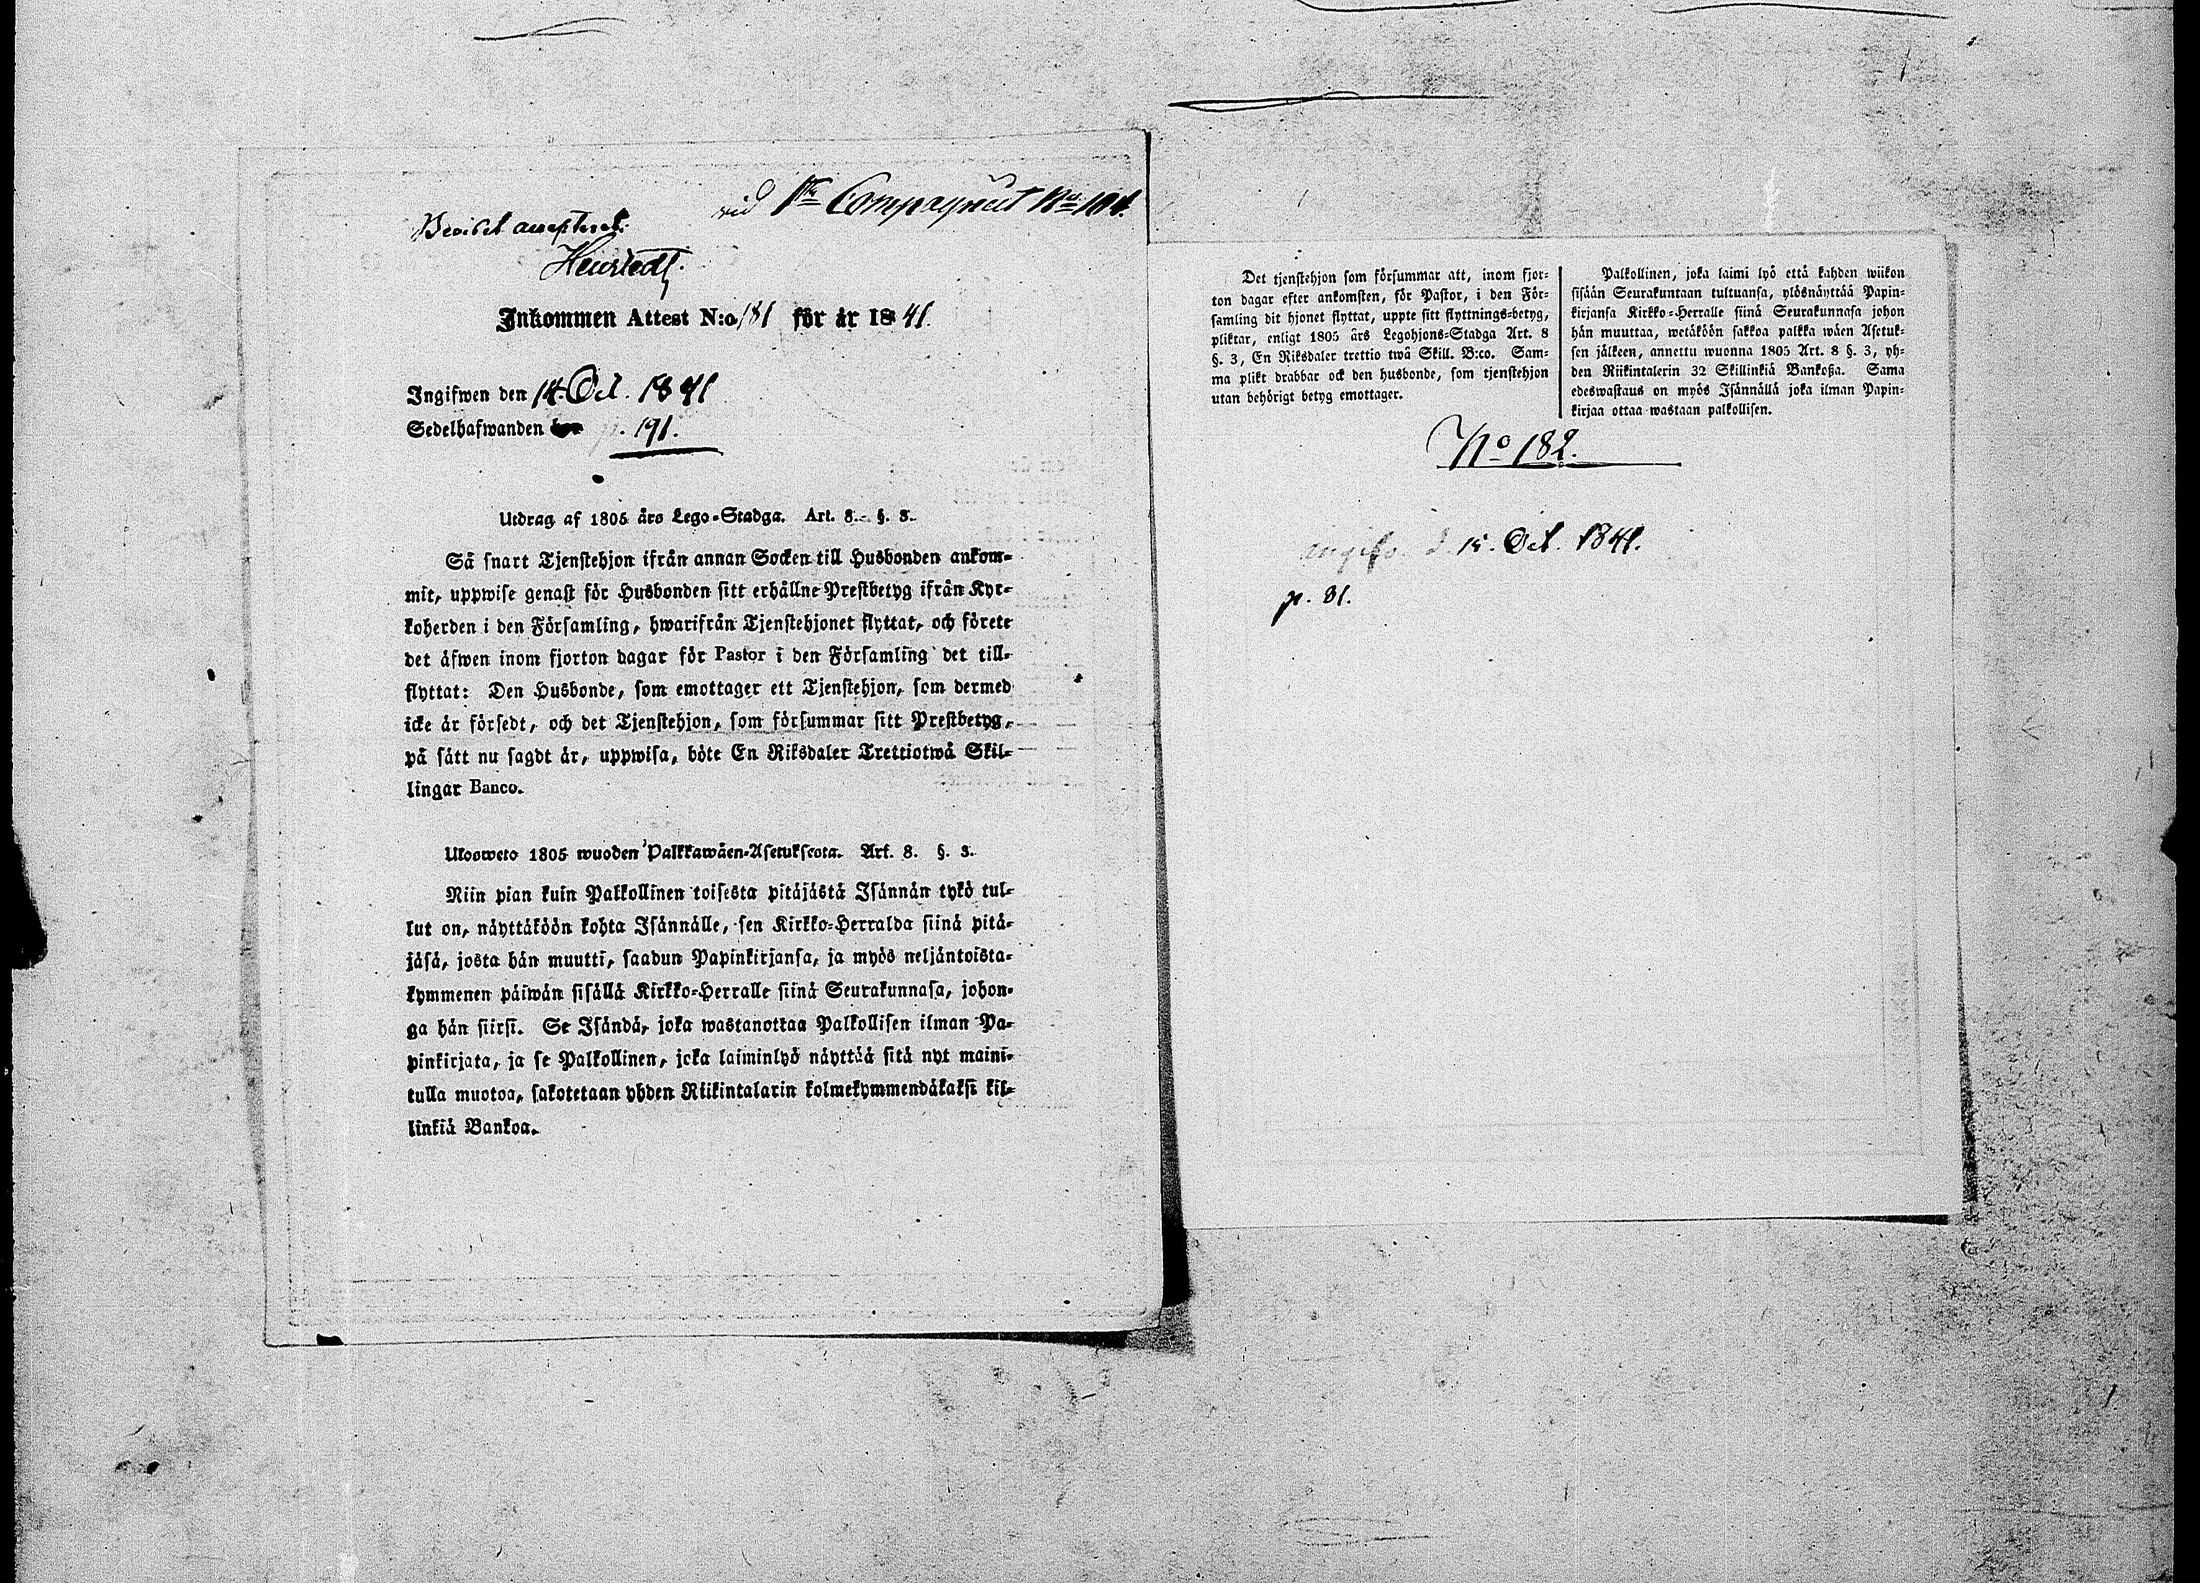 vid 1sta Compagniet No 101.
Beviset accepteradt.
Inkommen Attest N:o 181 för år 1841.
Ingifwen den 14. Oct. 1841
Sedelhafwanden bor p. 191.
Utdrag af 1805 års Lego-Stadga. Art. 8. §. 3.
Så snart Tjenstehjon ifrån annan Socken till Husbonden ankom-
mit, uppwise genast för Husbonden sitt erhållne Prestbetyg ifrån Kyr-
koherden i den Församling, hwarifrån Tjenstehjonet flyttat, och förete
det äfwen inom fjorton dagar för Pastor i den Församling det till-
flyttat: Den Husbonde, som emottager ett Tjenstehjon, som dermed
icke är försedt, och det Tjenstehjon, som försummar sitt Prestbetyg,
på sätt nu sagdt är, uppwisa, böte En Riksdaler Trettiotwå Skil-
lingar Banco.
Ulosweto 1805 wuoden Palkkawäen-Asetuksesta. Art. 8. §. 3.
Niin pian kuin Palkollinen toisesta pitäjästä Isännän tykö tul-
lut on, näyttäköön kohta Isännälle, sen Kirkko-Herralda siinä pitä-
jäsä, josta hän muutti, saadun Papinkirjansa, ja myös neljäntoista-
kymmenen päiwän sisällä Kirkko-Herralle siinä Seurakunnasa, johon-
ga hän siirsi. Se Isändä, joka wastanottaa Palkollisen ilman Pa-
pinkirjata, ja se Palkollinen, joka laiminlyö näyttää sitä nyt maini-
tulla muotoa, sakotetaan yhden Riikintalarin kolmekymmendäkaksi kil-
linkiä Bankoa.
Det tjenstehjon som försummar att, inom fjor-
ton dagar efter ankomsten, för Pastor, i den För-
samling dit hjonet flyttat, uppte sitt flyttnings-betyg,
pliktar, enligt 1805 års Legohjons-Stadga Art. 8
§. 3, En Riksdaler trettio twå Skill. B:co. Sam-
ma plikt drabbar ock den husbonde, som tjenstehjon
utan behörigt betyg emottager.
Palkollinen, joka laimi lyö että kahden wiikon
sisään Seurakuntaan tultuansa, ylösnäyttää Papin-
kirjansa Kirkko-Herralle siinä Seurakunnasa johon
hän muuttaa, wetäköön sakkoa palkka wäen Asetuk-
sen jälkeen, annettu wuonna 1805 Art. 8 §. 3, yh-
den Riikintalerin 32 Skillinkiä Bankoßa. Sama
edeswastaus on myös Isännällä joka ilman Papin-
kirjaa ottaa wastaan palkollisen.
No 182.
angifv. d. 15. Oct. 1841.
p. 81.